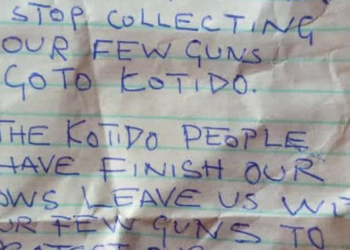 STOP COLLECTING
OUR FEW GUNS
GOTO KOTIDO.
THE KOTIDO PEOPLE
HAVE FINISH OUR
OWS LEAVE US WI
UR FEW GUNS TO